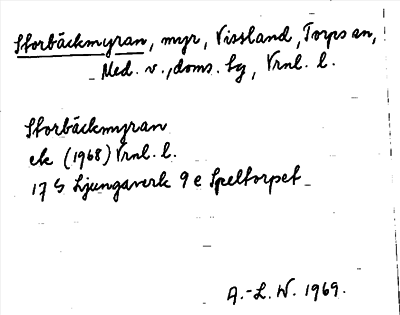 Storbäckmyran, myr, Vissland, Torps sn,
Med. v., doms. bg, Vrnl. l.
Storbäckmyran
ek (1968) Vrnl. l.
17 G Ljungaverk 9 e Speltorpet
A.-L. W. 1969.